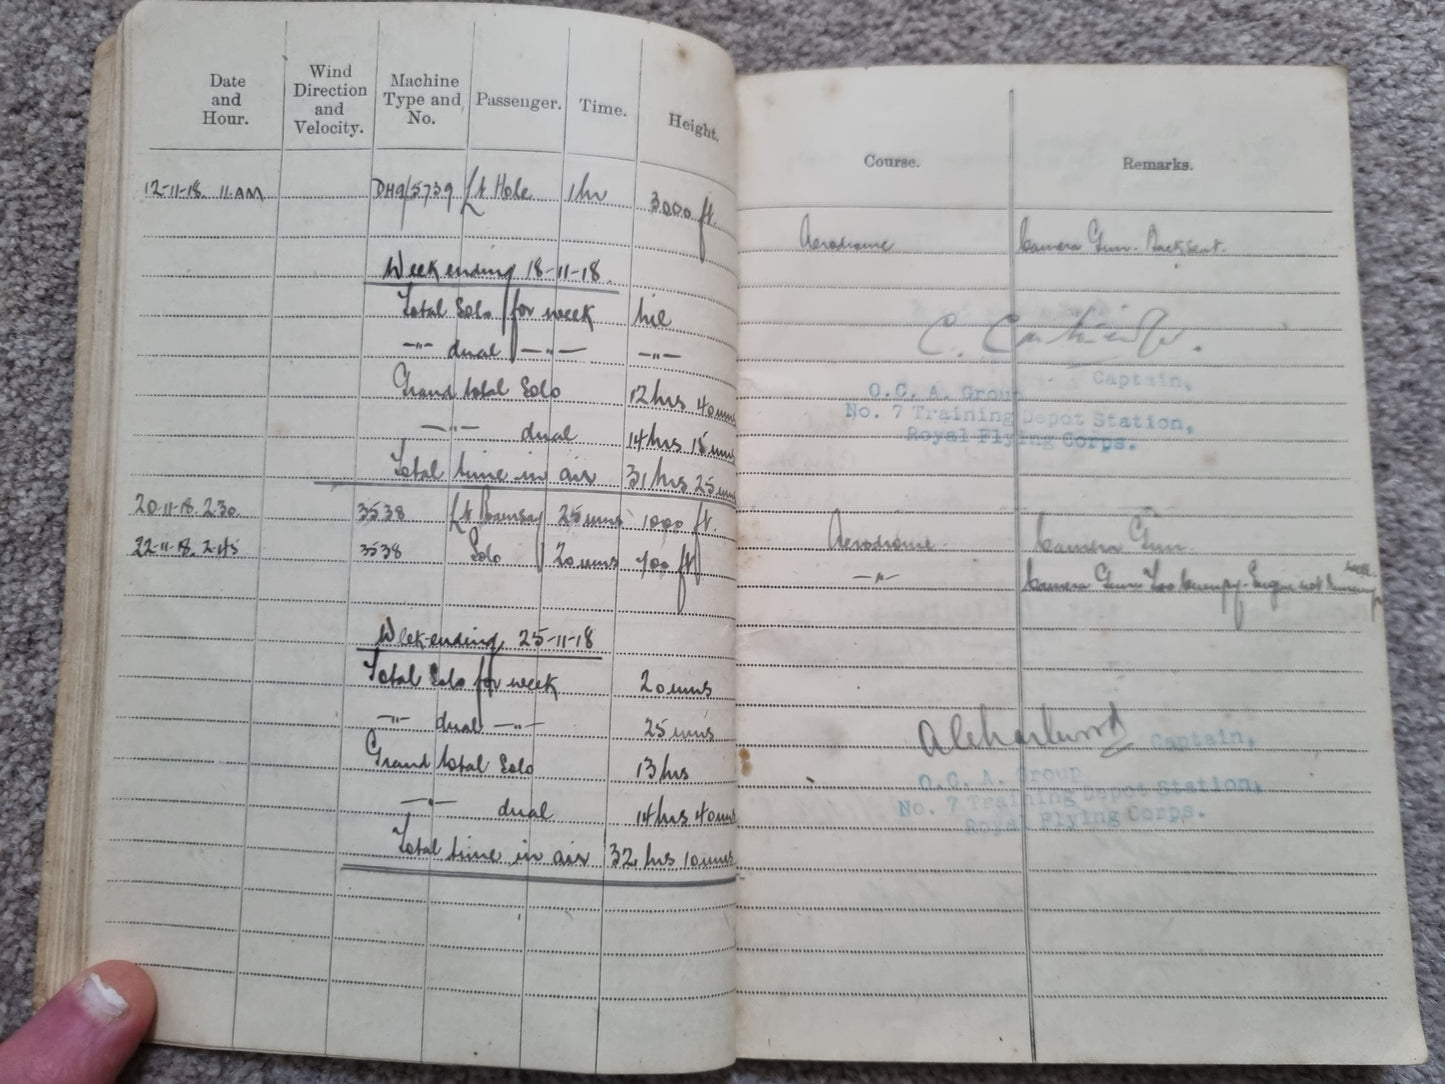 Date and Hour.
Wind Direction and Velocity.
Machine Type and No.
Passenger.
Time.
Height.
12-11-18. 11.AM DH9/5739 Lt Hole 1 hr 3000 ft.
Week ending 18-11-18.
Total Solo for week nil
—"— dual —"— —"—
Grand total Solo 12 hrs 40 mins
—"— dual 14 hrs 15 mins
Total time in air 31 hrs 25 mins
20-11-18. 2.30. 3538 Lt Ramsay 25 mins 1000 ft.
22-11-18. 2.45 3538 Solo 20 mins 700 ft
Week-ending, 25-11-18
Total Solo for week 20 mins
—"— dual —"— 25 mins
Grand total Solo 13 hrs
—"— dual 14 hrs 40 mins
Total time in air 32 hrs 10 mins
Course.
Remarks.
Aerodrome Camera Gun. Back Seat.
C.
Captain,
O.C. A. Group
No. 7 Training Depot Station,
Royal Flying Corps.
Aerodrome. Camera Gun.
—"— Camera Gun. Too bumpy. Engine not running well.
Captain,
O.C. A. Group
No. 7 Training Depot Station,
Royal Flying Corps.